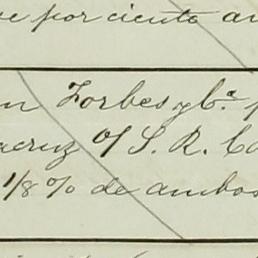 por ciento an
n Forbes y Ca. p
acruz o/ S. R. Ca
1/8 % de ambos